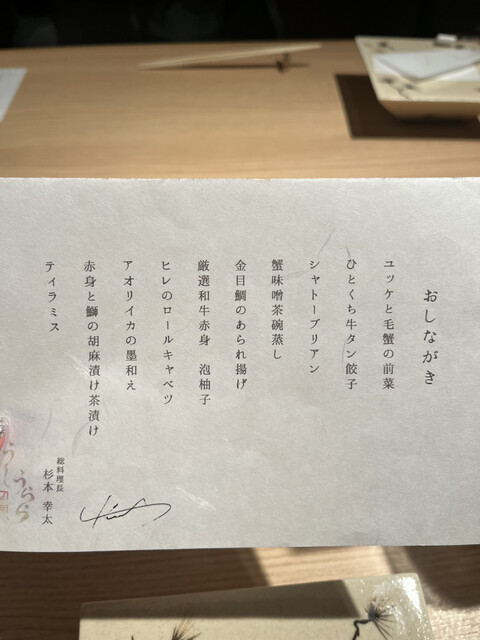 おしながき
ユッケと毛蟹の前菜
ひとくち牛タン餃子
シャトーブリアン
蟹味噌茶碗蒸し
金目鯛のあられ揚げ
厳選和牛赤身　泡柚子
ヒレのロールキャベツ
アオリイカの墨和え
赤身と鰤の胡麻漬け茶漬け
ティラミス
総料理長
杉本 幸太
うらら